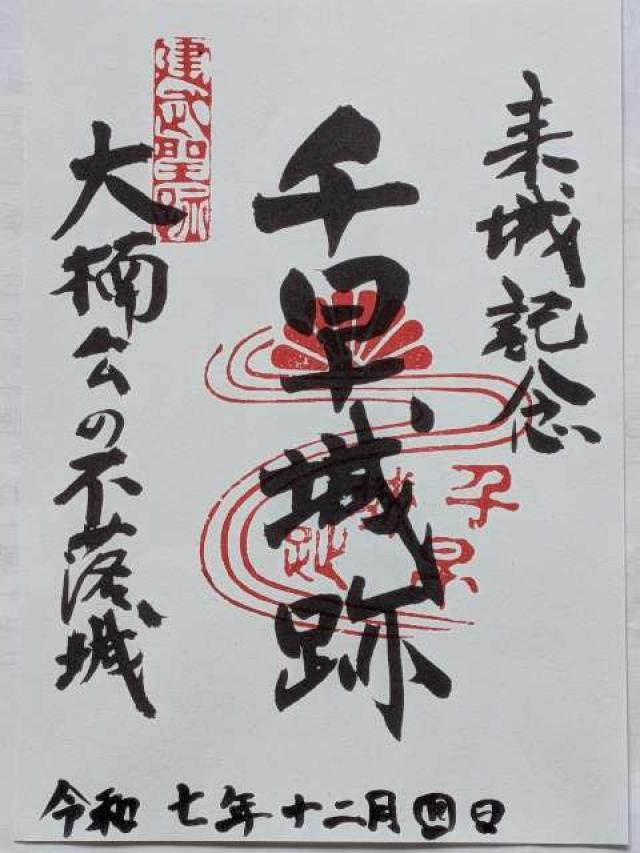 来城記念
千早城跡
千早
城址
建武聖跡
大楠公の不落城
令和七年十二月四日